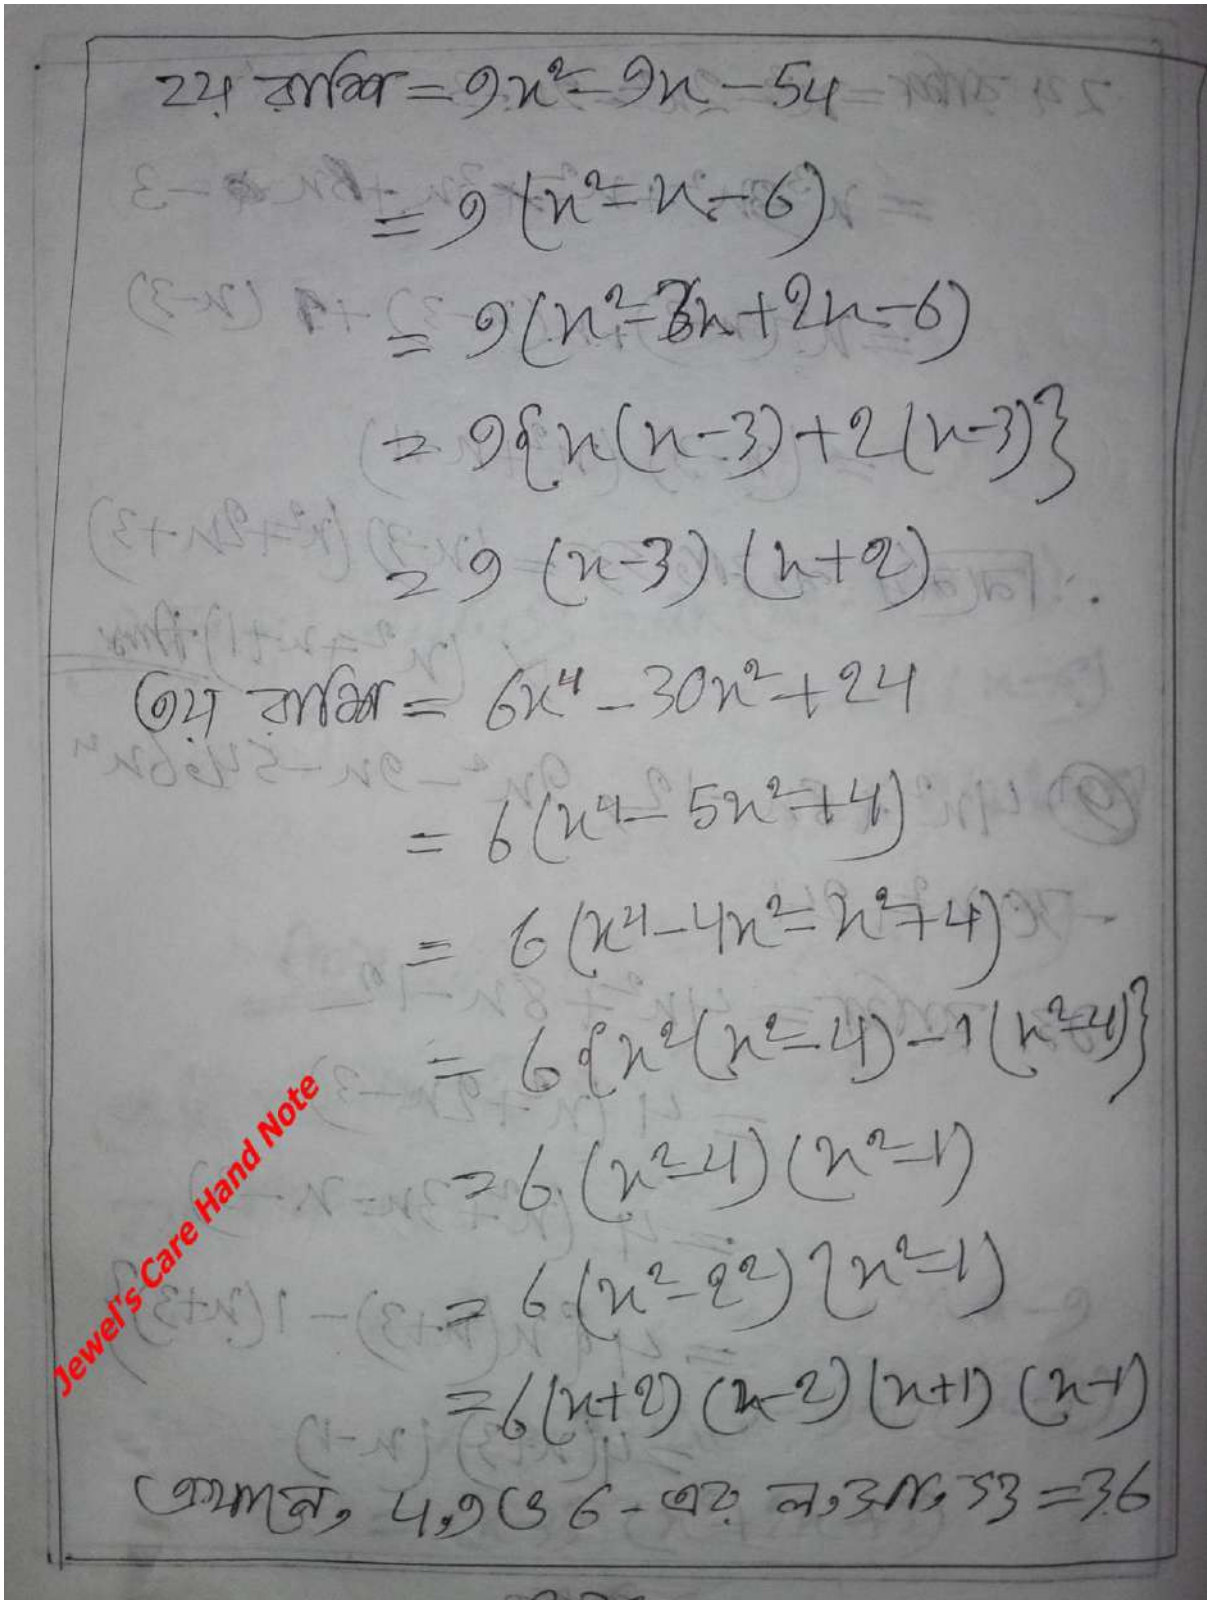 ২য় রাশি = 9x² - 9x - 54
= 9 (x² - x - 6)
= 9 (x² - 3x + 2x - 6)
= 9{x(x-3) + 2(x-3)}
= 9 (x-3) (x+2)
৩য় রাশি = 6x⁴ - 30x² + 24
= 6 (x⁴ - 5x² + 4)
= 6 (x⁴ - 4x² - x² + 4)
= 6 {x²(x² - 4) - 1 (x² - 4)}
= 6 (x² - 4) (x² - 1)
= 6 (x² - 2²) (x² - 1)
= 6(x+2) (x-2) (x+1) (x-1)
এখানে, 4, 9 ও 6 - এর ল, সা, গু = 36
Jewel's Care Hand Note